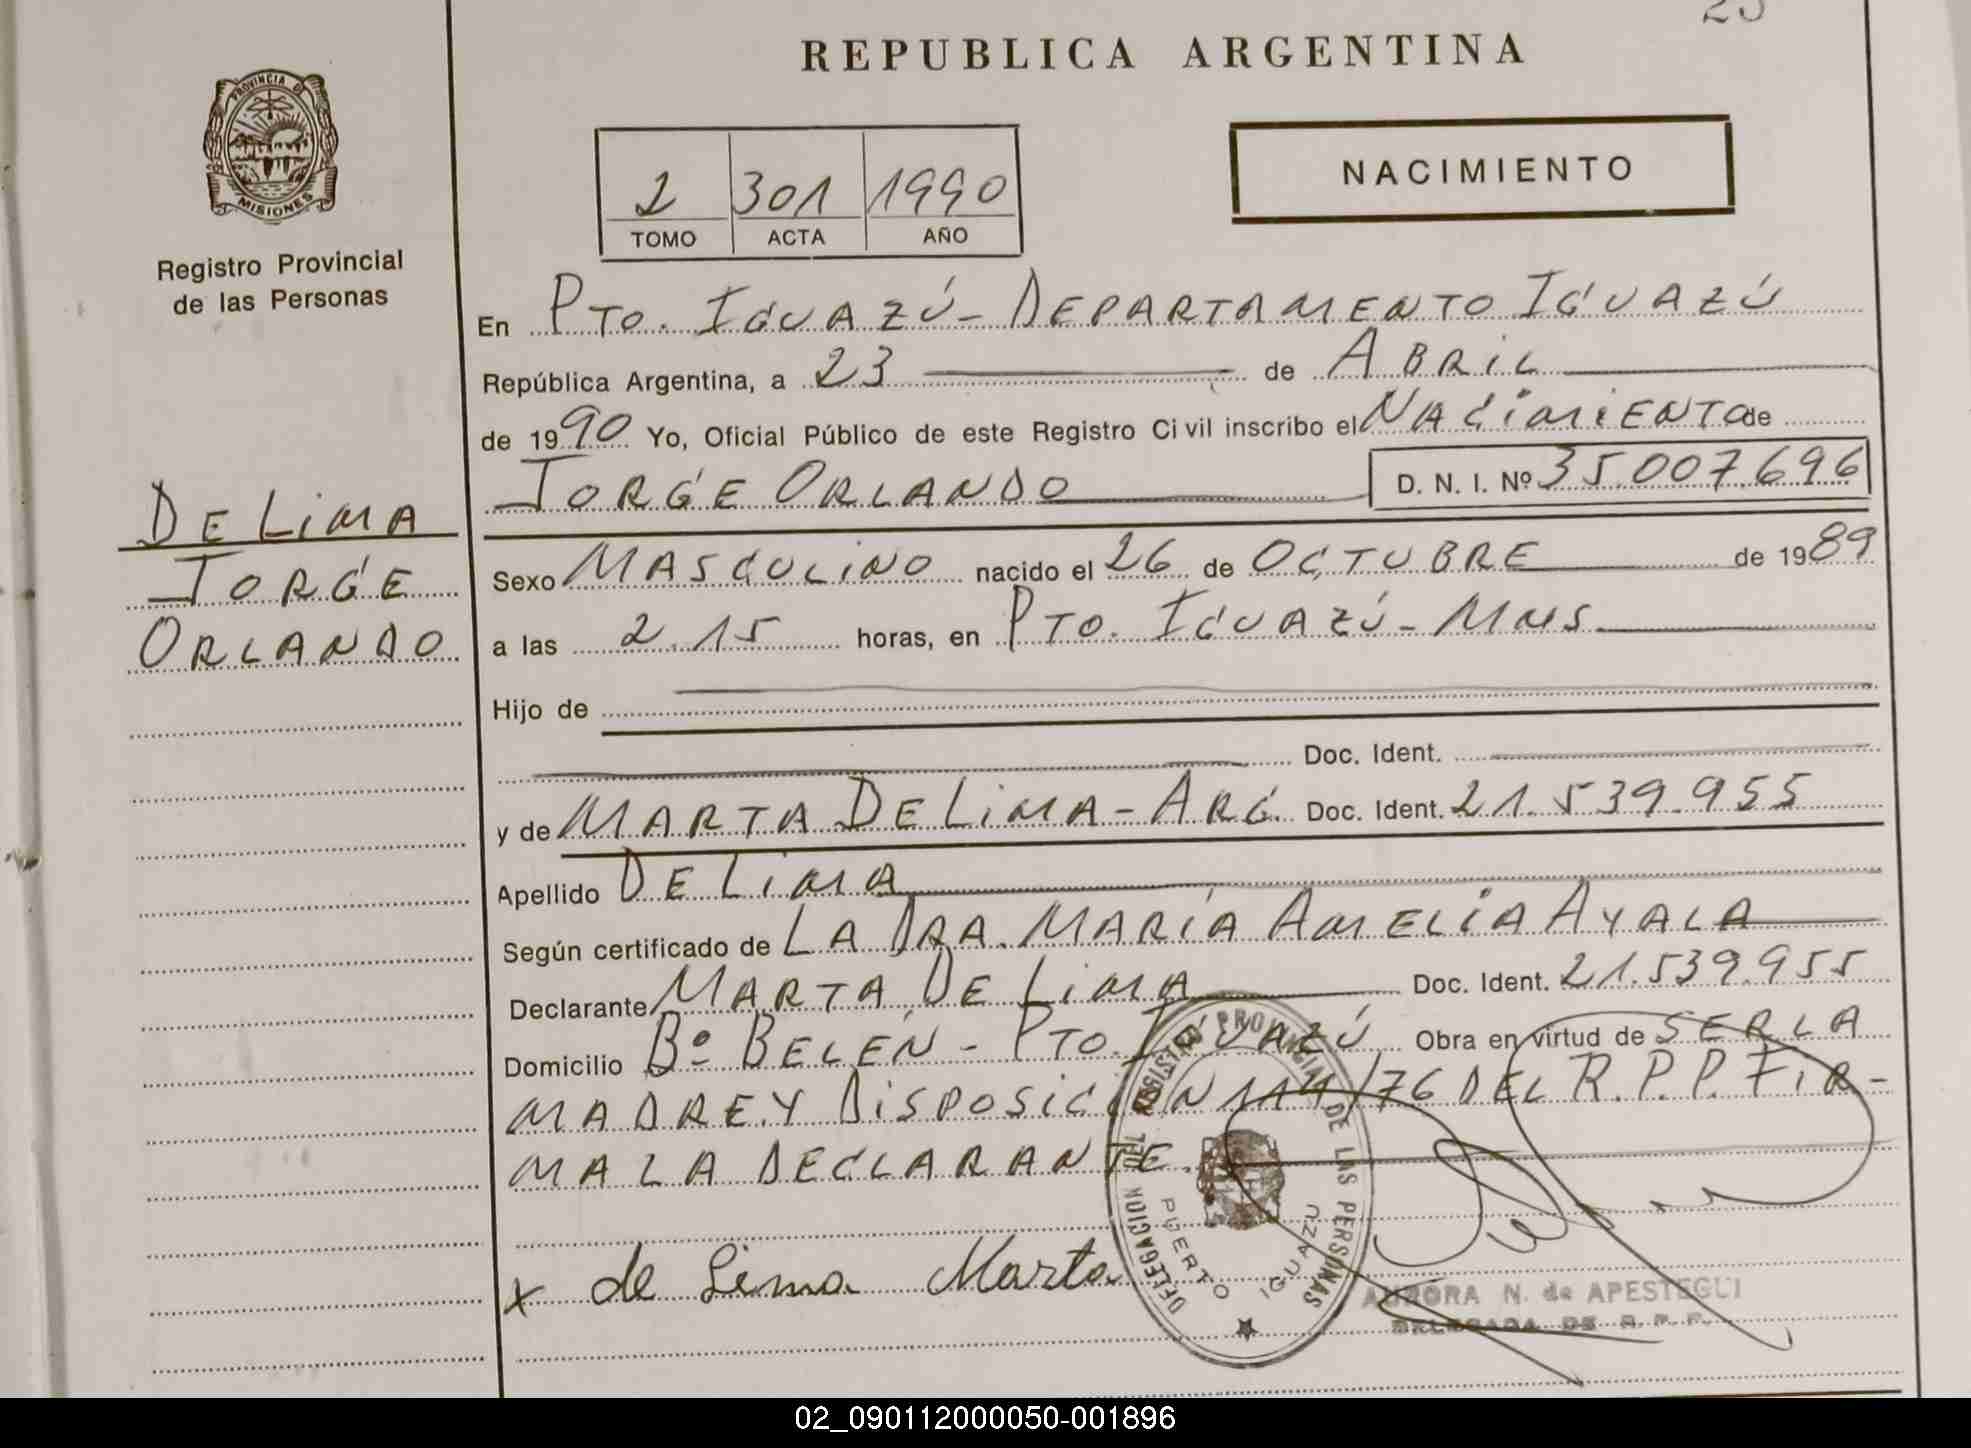 25
REPUBLICA ARGENTINA
PROVINCIA DE
MISIONES
Registro Provincial
de las Personas
NACIMIENTO
2 301 1990
TOMO ACTA AÑO
En PTO. IGUAZÚ - DEPARTAMENTO IGUAZÚ
República Argentina, a 23 de ABRIL
de 1990 Yo, Oficial Público de este Registro Civil inscribo el NACIMIENTO de
JORGE ORLANDO D. N. I. Nº 35.007.696
DE LIMA
JORGE
ORLANDO
Sexo MASCULINO nacido el 26 de OCTUBRE de 1989
a las 2.15 horas, en PTO. IGUAZÚ - MNS
Hijo de
Doc. Ident.
y de MARTA DE LIMA - ARG. Doc. Ident. 21.539.955
Apellido DE LIMA
Según certificado de LA DRA. MARÍA AMELIA AYALA
Declarante MARTA DE LIMA Doc. Ident. 21.539.955
Domicilio Bº BELÉN - PTO. IGUAZÚ Obra en virtud de SER LA
MADRE Y DISPOSICION 114/76 DEL R.P.P. FIR-
MA LA DECLARANTE.
x de Lima Marta
DELEGACION DEL REGISTRO PROVINCIAL DE LAS PERSONAS
PUERTO IGUAZU
AURORA N. de APESTEGUI
DELEGADA DE R. P. P.
02_090112000050-001896